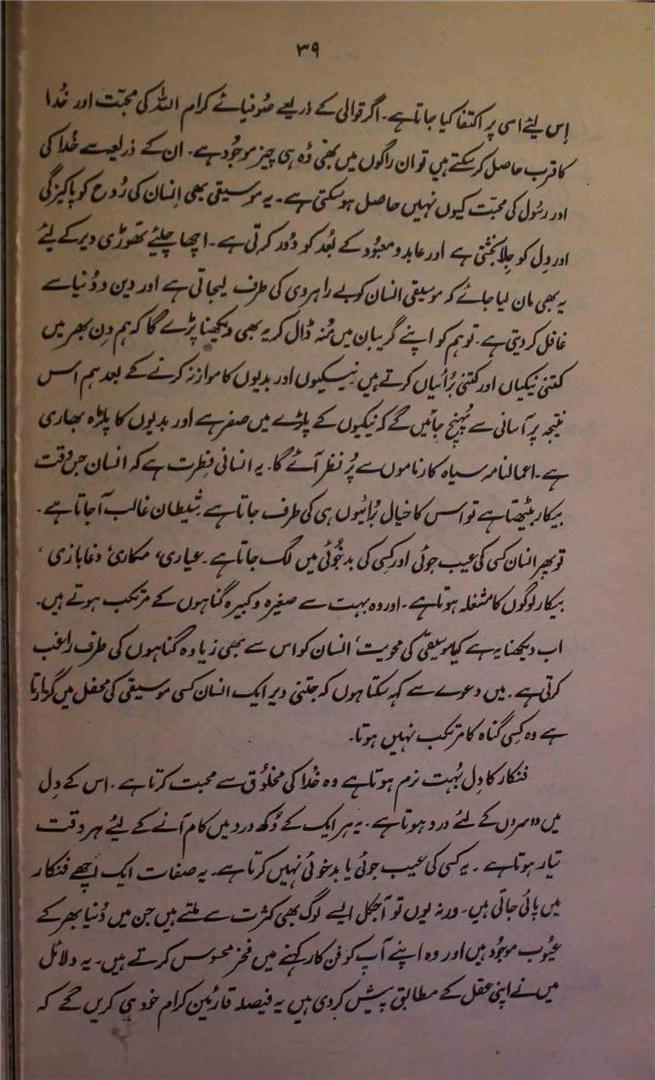 ۳۹
اِس لیئے اسی پر اکتفا کیا جاتا ہے۔ اگر قوالی کے ذریعے صُوفیائے کرام اللہ کی محبّت اور خُدا
کا قرب حاصل کر سکتے ہیں تو ان راگوں میں بھی وُہ ہی چیز موجُود ہے۔ ان کے ذریعہ سے خُدا کی
اور رسُول کی محبّت کیوں نہیں حاصل ہو سکتی ہے۔ یہ موسیقی بھی اِنسان کی رُوح کو پاکیزگی
اور دِل کو جِلا بخشتی ہے اور عابد و معبُود کے بُعد کو دُور کرتی ہے۔ اچھا چلیئے تھوڑی دیر کے لیئے
یہ بھی مان لیا جائے کہ موسیقی انسان کو بے راہروی کی طرف لیجاتی ہے اور دین و دُنیا سے
غافل کر دیتی ہے۔ تو ہم کو اپنے گریبان میں مُنہ ڈال کر یہ بھی دیکھنا پڑے گا کہ ہم دِن بھر میں
کتنی نیکیاں اور کتنی بُرائیاں کرتے ہیں نیکیوں اور بدیوں کا موازنہ کرنے کے بعد ہم اس
نتیجہ پر آسانی سے پُہنچ جائیں گے کہ نیکیوں کے پلڑے میں صفر ہے اور بدیوں کا پلڑہ بھاری
ہے۔ اعمالنامہ سیاہ کارناموں سے پُر نظر آئے گا۔ یہ انسانی فِطرت ہے کہ انسان جس وقت
بیکار بیٹھتا ہے تو اس کا خیال بُرائیوں ہی کی طرف جاتا ہے شیطان غالب آ جاتا ہے۔
تو پھر انسان کسی کی عیب جوئی اور کِسی کی بد خُوئی میں لگ جاتا ہے۔ عیاری، مکاری، دغا بازی،
بیکار لوگوں کا مشغلہ ہوتا ہے۔ اور وہ بہت سے صغیرہ و کبیرہ گناہوں کے مرتکب ہوتے ہیں۔
اب دیکھنا یہ ہے کیا موسیقی کی محویت، انسان کو اس سے بھی زیادہ گناہوں کی طرف راغب
کرتی ہے۔ میں دعوے سے کہہ سکتا ہوں کہ جتنی دیر ایک انسان کسی موسیقی کی محفل میں گزارتا
ہے وہ کِسی گناہ کا مرتکب نہیں ہوتا۔
فنکار کا دِل بُہت نرم ہوتا ہے وہ خُدا کی مخلُوق سے محبت کرتا ہے۔ اس کے دِل
میں دوسروں کے لئے درد ہوتا ہے۔ یہ ہر ایک کے دُکھ درد میں کام آنے کے لیئے ہر وقت
تیار ہوتا ہے۔ یہ کسی کی عیب جوئی یا بدخوئی نہیں کرتا ہے۔ یہ صفات ایک اچھے فنکار
میں پائی جاتی ہیں۔ ورنہ یوں تو آجکل ایسے لوگ بھی کثرت سے ملتے ہیں جن میں دُنیا بھر کے
عیُوب موجُود ہیں اور وہ اپنے آپ کو فن کار کہنے میں فخر محسُوس کرتے ہیں۔ یہ دلائل
میں نے اپنی عقل کے مطابق پیش کر دی ہیں یہ فیصلہ قارئین کرام خود ہی کریں گے کہ